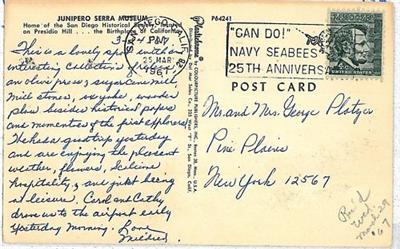 JUNIPERO SERRA MUSEUM
Home of the San Diego Historical
on Presidio Hill . . . the Birthplace of California
P64241
3-24
This is a lovely spot with an
interesting collection (right)
an olive press, sugar cane mill
mill stone, ox yoke, wooden
plow besides historical papers
and mementoes of the first explorers
We had a good trip yesterday
and are enjoying the pleasant
weather, flowers,
hospitality, and just being
at leisure. Carol and Cathy
drove us to the airport early
yesterday morning. Love
Mildred
25 MAR
1967
"CAN DO!"
NAVY SEABEES
25TH ANNIVERSA
UNITED STATES
POST CARD
Mr. and Mrs. George Plotzer
Pine Plains
New York 12567
Rec'd
Wed.
March 29
'67